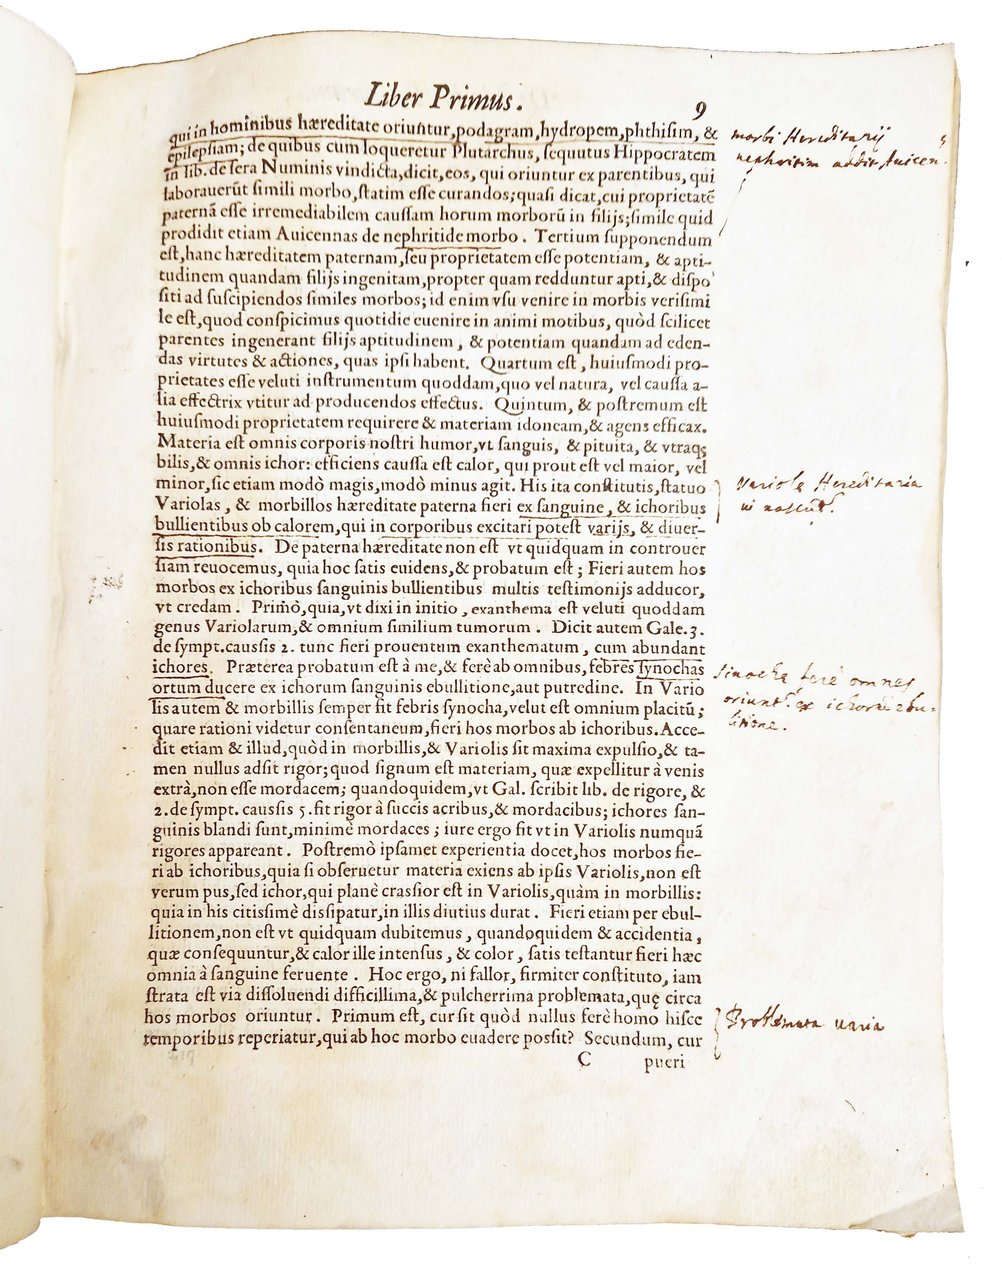 Liber Primus.
9
qui in hominibus hæreditate oriuntur,podagram,hydropem,phthisim, &
epilepsiam; de quibus cum loqueretur Plutarchus, sequutus Hippocratem
in lib. de sera Numinis vindicta,dicit,eos, qui oriuntur ex parentibus, qui
laborauerũt simili morbo,statim esse curandos;quasi dicat,cui proprietatẽ
paternã esse irremediabilem caussam horum morborũ in filijs;simile quid
prodidit etiam Auicennas de nephritide morbo. Tertium supponendum
est,hanc hæreditatem paternam,seu proprietatem esse potentiam, & apti-
tudinem quandam filijs ingenitam,propter quam redduntur apti,& dispo
siti ad suscipiendos similes morbos; id enim vsu venire in morbis verisimi
le est,quod conspicimus quotidie euenire in animi motibus, quòd scilicet
parentes ingenerant filijs aptitudinem, & potentiam quandam ad eden-
das virtutes & actiones, quas ipsi habent. Quartum est, huiusmodi pro-
prietates esse veluti instrumentum quoddam,quo vel natura, vel caussa a-
lia effectrix vtitur ad producendos effectus. Quintum, & postremum est
huiusmodi proprietatem requirere & materiam idoneam,& agens efficax.
Materia est omnis corporis nostri humor,vt sanguis, & pituita, & vtraq;
bilis,& omnis ichor: efficiens caussa est calor, qui prout est vel maior, vel
minor,sic etiam modò magis,modò minus agit. His ita constitutis,statuo
Variolas, & morbillos hæreditate paterna fieri ex sanguine, & ichoribus
bullientibus ob calorem,qui in corporibus excitari potest varijs, & diuer-
sis rationibus. De paterna hæreditate non est vt quidquam in controuer
siam reuocemus, quia hoc satis euidens,& probatum est; Fieri autem hos
morbos ex ichoribus sanguinis bullientibus multis testimonijs adducor,
vt credam. Primò,quia,vt dixi in initio, exanthema est veluti quoddam
genus Variolarum,& omnium similium tumorum. Dicit autem Gale.3.
de sympt.caussis 2. tunc fieri prouentum exanthematum, cum abundant
ichores. Præterea probatum est à me,& ferè ab omnibus,febres synochas
ortum ducere ex ichorum sanguinis ebullitione,aut putredine. In Vario
lis autem & morbillis semper fit febris synocha,velut est omnium placitũ;
quare rationi videtur consentaneum,fieri hos morbos ab ichoribus.Acce-
dit etiam & illud,quòd in morbillis,& Variolis sit maxima expulsio,& ta-
men nullus adsit rigor;quod signum est materiam, quæ expellitur à venis
extrà,non esse mordacem; quandoquidem,vt Gal. scribit lib. de rigore, &
2.de sympt. caussis 5.fit rigor à succis acribus,& mordacibus; ichores san-
guinis blandi sunt,minimè mordaces; iure ergo fit vt in Variolis numquã
rigores appareant. Postremò ipsamet experientia docet,hos morbos fie-
ri ab ichoribus,quia si obseruetur materia exiens ab ipsis Variolis,non est
verum pus,sed ichor,qui planè crassior est in Variolis,quàm in morbillis:
quia in his citissimè dissipatur,in illis diutius durat. Fieri etiam per ebul-
litionem,non est vt quidquam dubitemus, quandoquidem & accidentia,
quæ consequuntur,& calor ille intensus, & color, satis testantur fieri hæc
omnia à sanguine feruente. Hoc ergo, ni fallor, firmiter constituto, iam
strata est via dissoluendi difficillima,& pulcherrima problemata,quę circa
hos morbos oriuntur. Primum est, cur sit quòd nullus ferè homo hisce
temporibus reperiatur,qui ab hoc morbo euadere possit? Secundum, cur
C pueri
morbi Hereditarij
nephritim addit Auicen.
Variole Hereditaria
nascunt.
Sinocha fere omnes
oriunt. ex ichorũ ebu-
litione.
Problemata varia